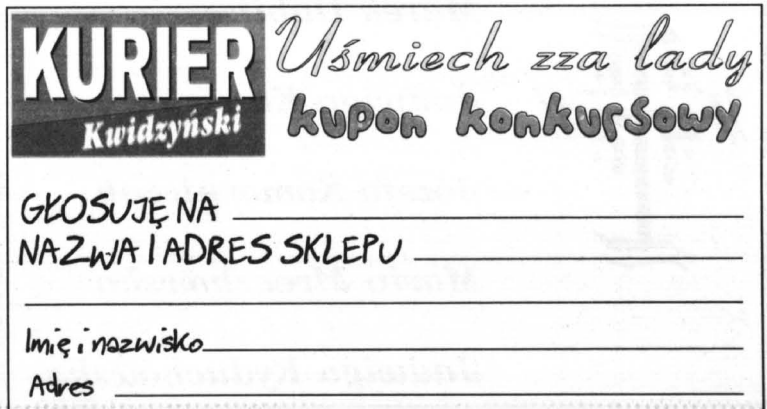 KURIER
Kwidzyński
Uśmiech zza lady
kupon konkursowy
GŁOSUJĘ NA
NAZWA I ADRES SKLEPU
Imię i nazwisko
Adres